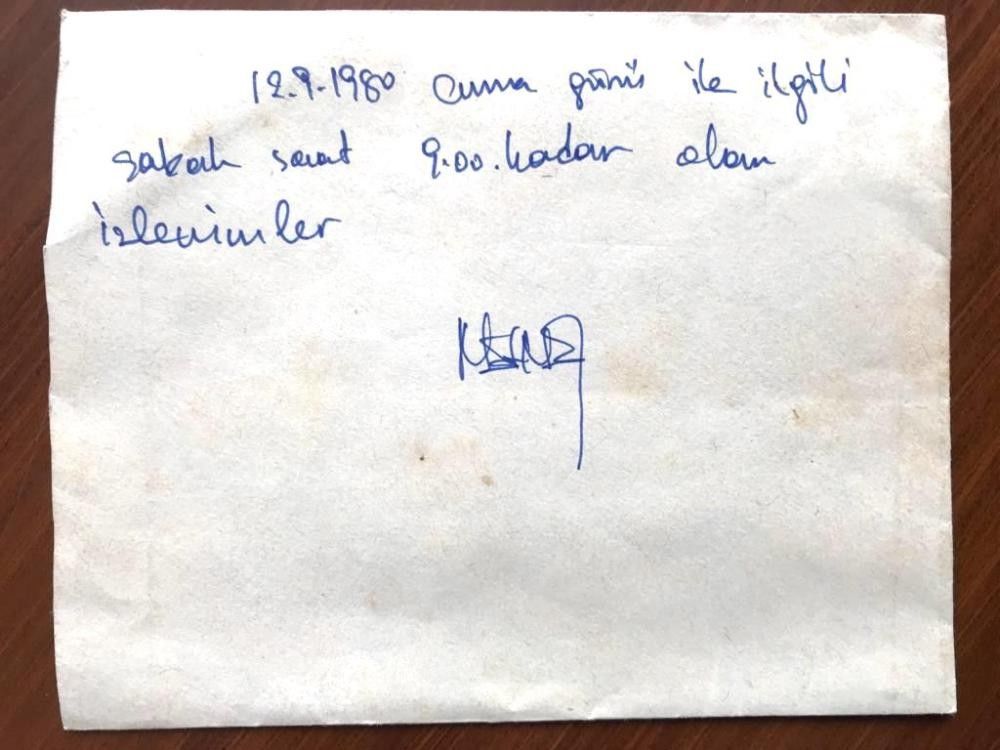 12.9.1980 Cuma günü ile ilgili
sabah saat 9.00.kadar olan
izlenimler